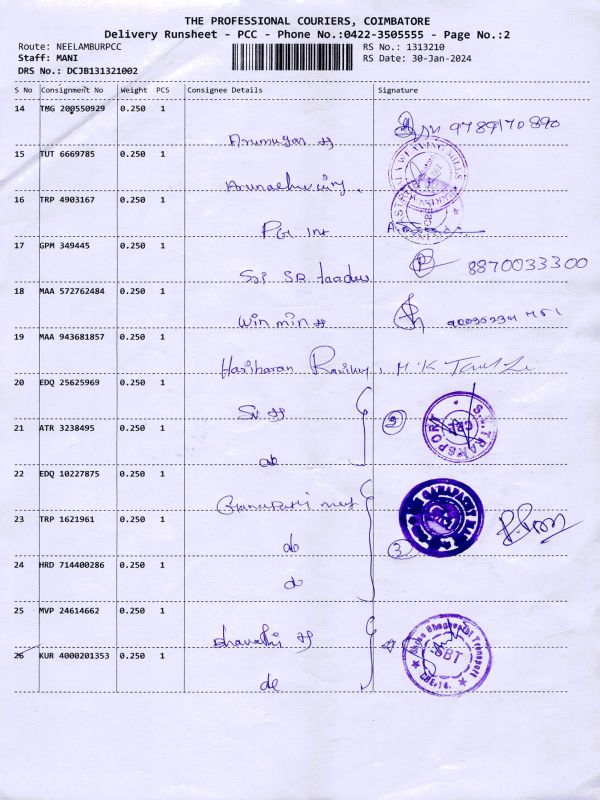 THE PROFESSIONAL COURIERS, COIMBATORE
Delivery Runsheet - PCC - Phone No.:0422-3505555 - Page No.:2
Route: NEELAMBURPCC RS No.: 1313210
Staff: MANI RS Date: 30-Jan-2024
DRS No.: DCJB131321002
S No Consignment No Weight PCS Consignee Details Signature
14 TMG 200550929 0.250 1
9789170890
15 TUT 6669785 0.250 1
WEAVING MILLS
16 TRP 4903167 0.250 1
17 GPM 349445 0.250 1
Sri SR traders 8870033300
18 MAA 572762484 0.250 1
win min
19 MAA 943681857 0.250 1
Hariharan
20 EDQ 25625969 0.250 1
2 S.V.TRANSPORT CBE
21 ATR 3238495 0.250 1
do
22 EDQ 10227875 0.250 1
Ganapathi
23 TRP 1621961 0.250 1
do 3
24 HRD 714400286 0.250 1
do
25 MVP 24614662 0.250 1
Shree Bhagavathi Transport SBT
26 KUR 4000201353 0.250 1
do